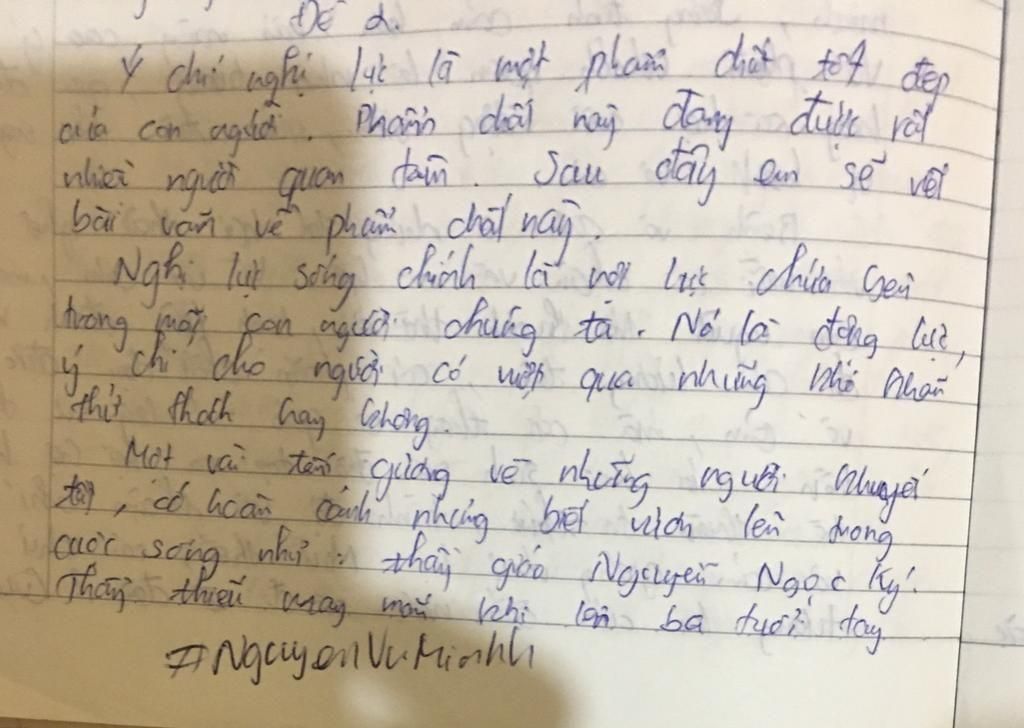 Đề 2.
Ý chí nghị lực là một phẩm chất tốt đẹp
của con người. Phẩm chất này đang được rất
nhiều người quan tâm. Sau đây em sẽ viết
bài văn về phẩm chất này.
Nghị lực sống chính là nội lực chứa bên
trong một con người chúng ta. Nó là động lực,
ý chí cho người có vượt qua những khó khăn
thử thách hay không.
Một vài tấm gương về những người khuyết
tật, có hoàn cảnh nhưng biết vươn lên trong
cuộc sống như : thầy giáo Nguyễn Ngọc Ký.
Thầy thiếu may mắn khi lên ba tuổi tay
#NguyenVuMinhh